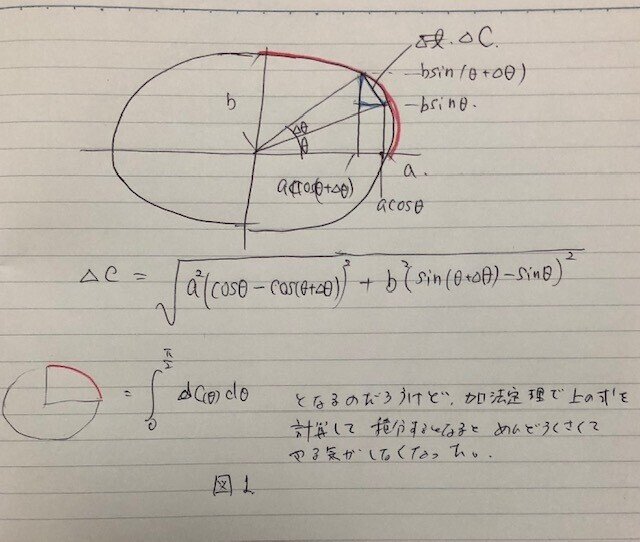 Δl. ΔC.
b sin(θ+Δθ)
b sinθ.
b
Δθ
θ
a cos(θ+Δθ)
a.
a cosθ
ΔC = √a²(cosθ - cos(θ+Δθ))² + b²(sin(θ+Δθ) - sinθ)²
= ∫₀^(π/2) ΔC(θ) dθ
となるのだろうけど、加法定理で上の式を
計算して 積分するとなると めんどうくさくて
やる気がしなくなった。
図1